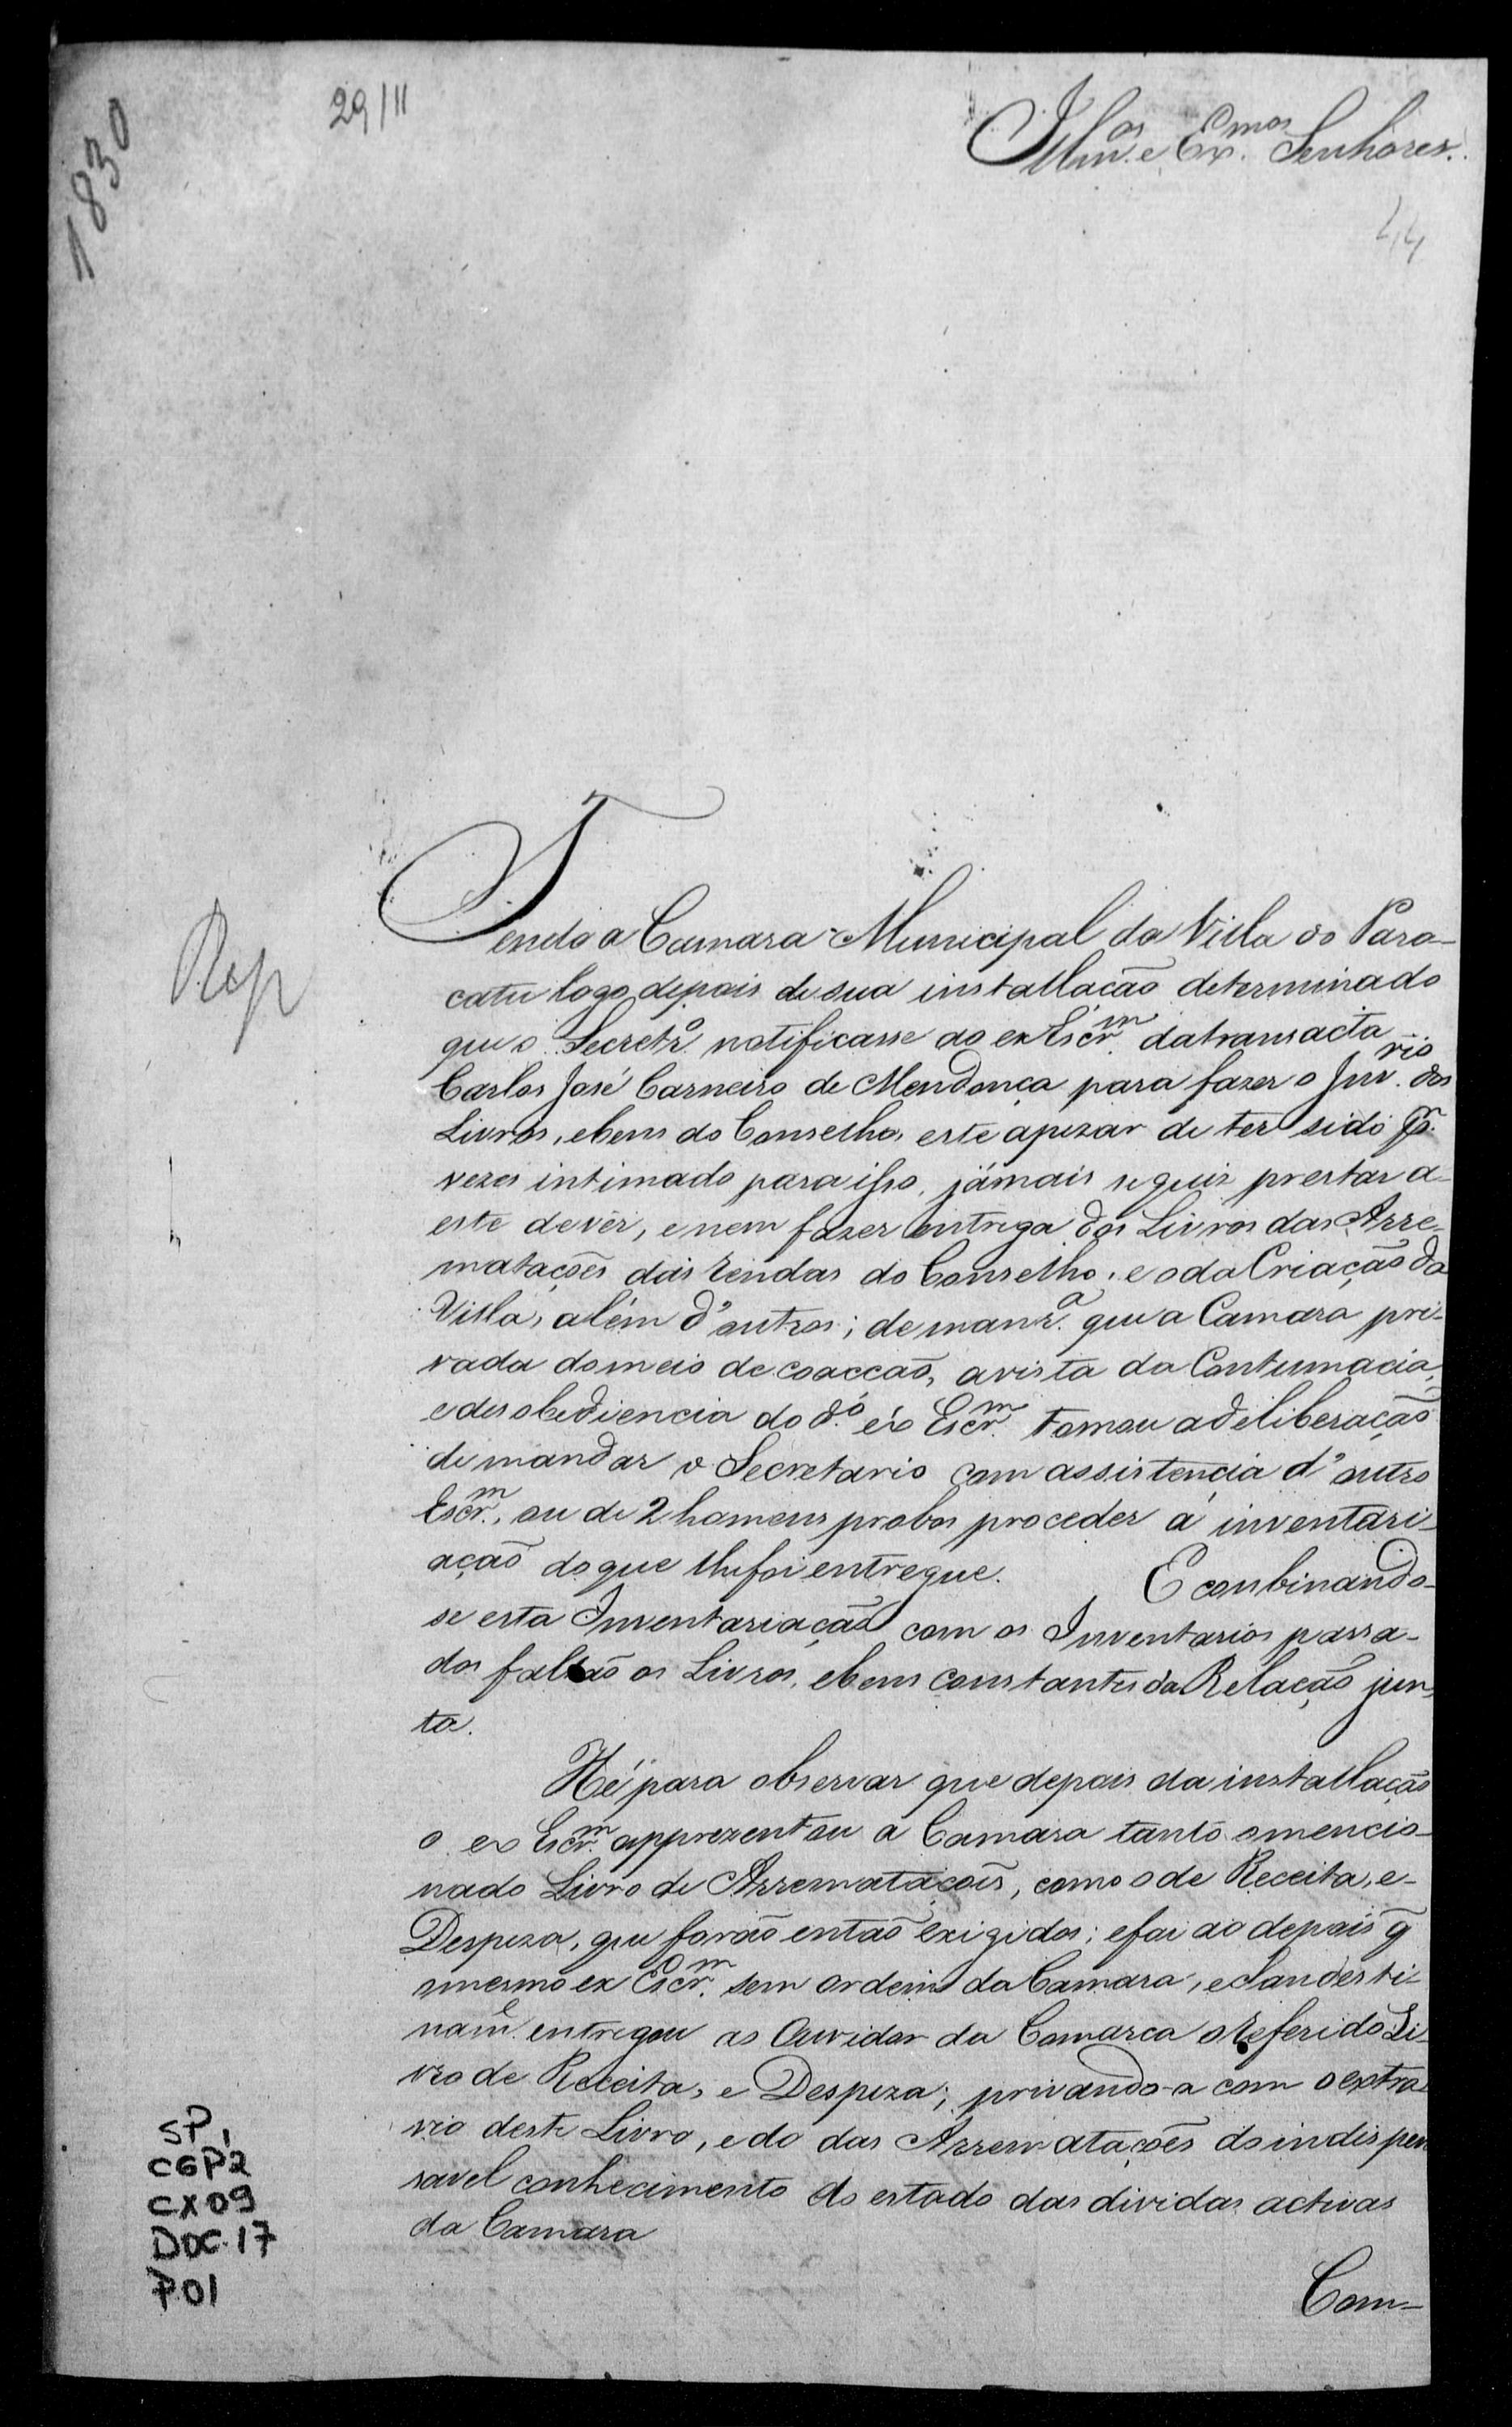 1830
29/11
Illm.os e Ex.mos Senhores.
44
Tendo a Camara Municipal da Villa do Para-
catu logo depois de sua installacão determinado
que o Secretr.o notificasse ao ex Escr.m da transacta
Carlos José Carneiro de Mendonça para fazer o Inv.rio dos
Livros, e bens do Conselho, este apezar de ter sido
vezes intimado para isso, jámais quiz prestar a
este devêr, e nem fazer entrega dos Livros das Arre-
matações das rendas do Conselho, e o da Criação da
Villa, além d'outros; de manr.a que a Camara pri-
vada do meio de coaccão, a vista da Contumacia,
e desobediencia do d.o ex Escr.m tomou a deliberação
de mandar o Secretario com assistencia d'outro
Escr.m, ou de 2 homens probos proceder á inventari-
ação do que lhe foi entregue. E conbinando-
se esta Inventariação com os Inventarios passa-
dos faltão os Livros, e bens constantes da Relação jun-
ta.
Rep
Hé para observar que depois da installação
o ex Escr.m apprezentou a Camara tanto o mencio-
nado Livro de Arrematacoẽs, como o de Receita, e-
Despeza, que forão então exigidos; e foi ao depois q̃
o mesmo ex Escr.m sem ordem da Camara, e clandesti-
nam.e entregou ao Ouvidor da Comarca o referido Li-
vro de Receita, e Despeza; privando-a com o extra-
vio deste Livro, e do das Arrematações do indispen
savel conhecimento do estado das dividas activas
da Camara
Com-
SP,
CGP2
CX09
DOC.17
P01